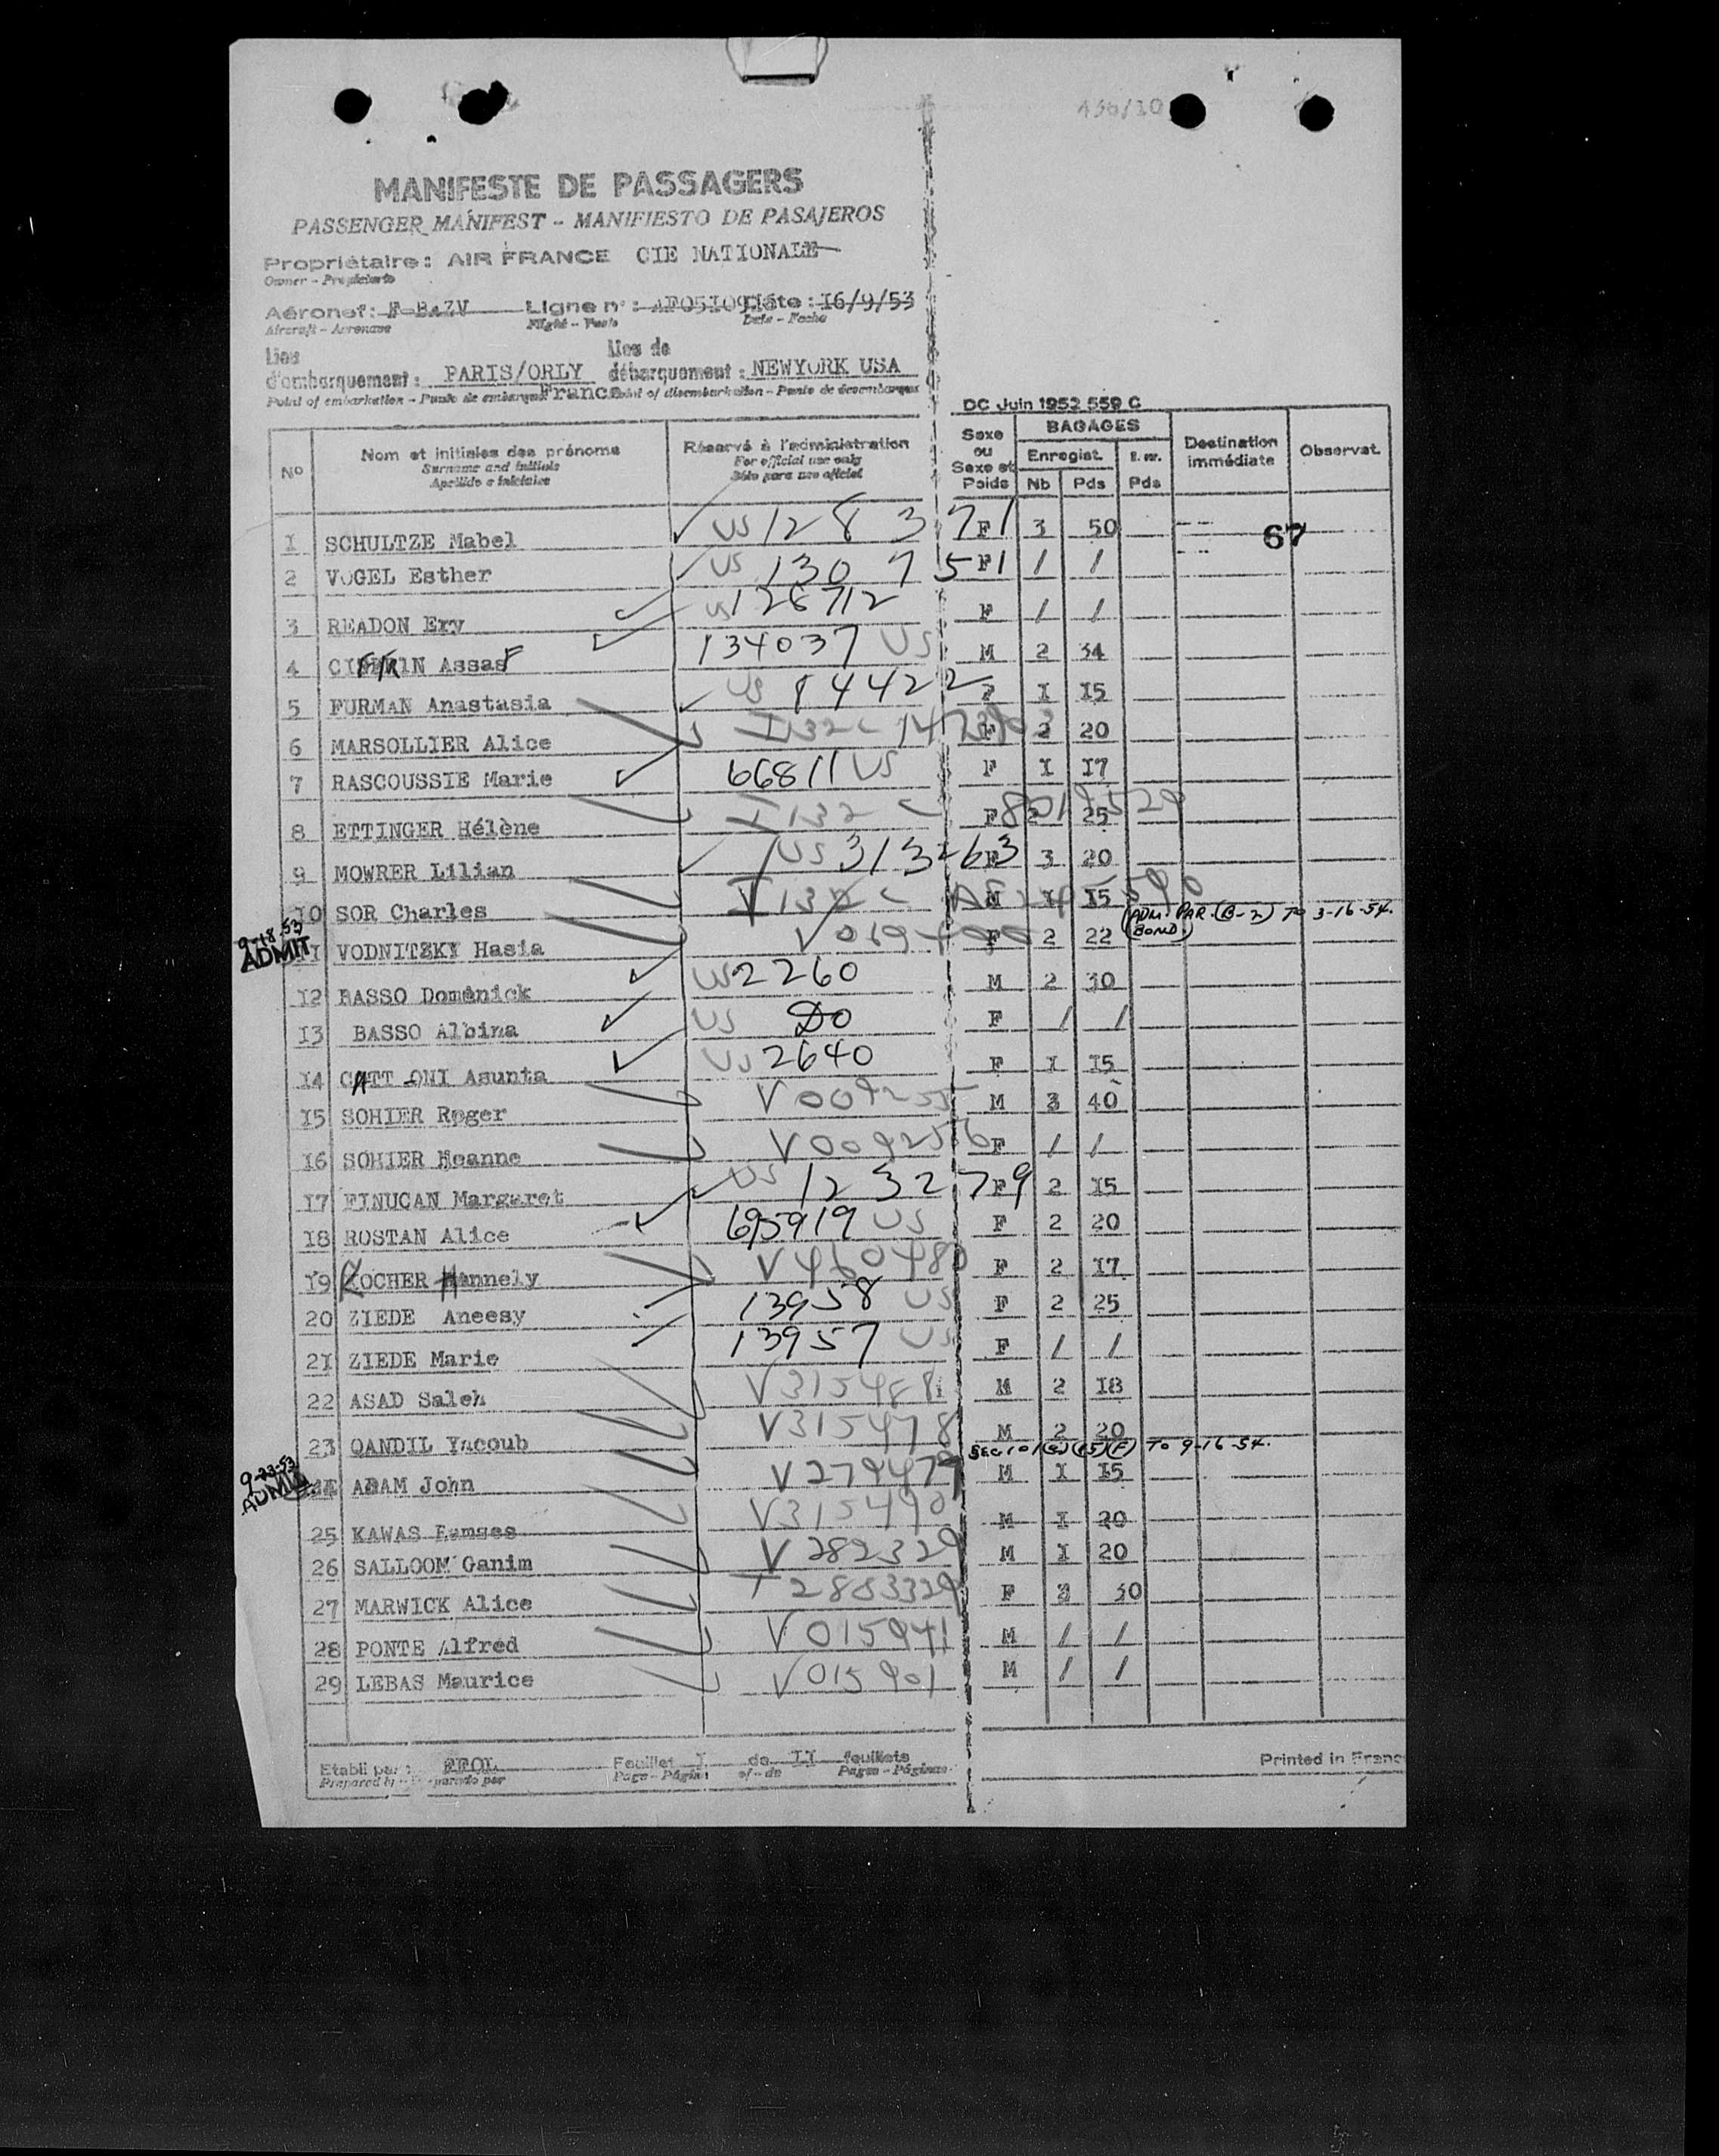 MANIFESTE DE PASSAGERS
PASSENGER MANIFEST - MANIFIESTO DE PASAJEROS
Propriétaire : AIR FRANCE CIE NATIONALE
Owner - Propietario
Aéronef : F-BAZV Ligne n° : Date : I6/9/53
Aircraft - Aeronave Flight - Vuelo Date - Fecha
Lieu d'embarquement : PARIS/ORLY France Lieu de débarquement : NEWYORK USA
Point of embarkation - Punto de embarque Point of disembarkation - Punto de desembarque
DC Juin 1952 559 C
N° Nom et initiales des prénoms Réservé à l'administration Sexe ou Sexe et Poids BAGAGES Enregist. Nb Pds Pds Destination immédiate Observat.
Surname and initials For official use only
Apellido e iniciales Sólo para uso oficial
I SCHULTZE Mabel US 128371 F 3 50 67
2 VOGEL Esther US 130751 F / /
3 READON Ery US 128712 F / /
4 Assaf 134037 US M 2 34
5 FURMAN Anastasia US 14422 I I5
6 MARSOLLIER Alice I132c F 2 20
7 RASCOUSSIE Marie 66811 US F I I7
8 ETTINGER Hélène I132c F 2 25
9 MOWRER Lilian US 313263 F 3 20
IO SOR Charles I132c M I I5
9-18-53 ADMIT ADM. PAR. (B-2) TO 3-16-54. (BOND.)
II VODNITZKI Hasia F 2 22
I2 BASSO Domênick US 2260 M 2 30
I3 BASSO Albina US DO F / /
I4 CATT ONI Asunta US 2640 F I I5
I5 SOHIER Roger V009255 M 3 40
I6 SOHIER V009256 F / /
I7 FINUCAN Margaret US 123279 F 2 I5
I8 ROSTAN Alice 695919 US F 2 20
I9 KOCHER Hannely V460480 F 2 I7
20 ZIEDE Aneesy 13958 US F 2 25
2I ZIEDE Marie 13957 US F / /
22 ASAD Saleh V315488 M 2 I8
23 QANDIL Yacoub V315478 M 2 20
9-23-53 ADMIT SEC 101(a)(15)(F) TO 9-16-54.
24 ADAM John V279479 M I I5
25 KAWAS Ramses V315490 M I 20
26 SALLOOM Ganim V282329 M I 20
27 MARWICK Alice I2883329 F 2 30
28 PONTE Alfred V015941 M / /
29 LEBAS Maurice V015901 M / /
Etabli par : Feuillet I de II feuillets
Prepared by - Preparado por Page - Página of - de Pages - Páginas
Printed in Franc